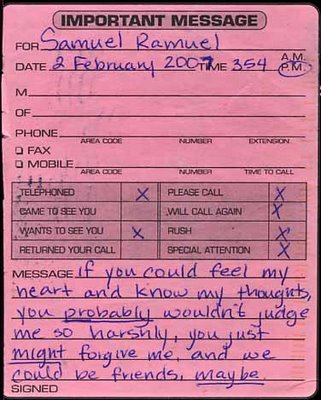 IMPORTANT MESSAGE
FOR Samuel Ramuel
A.M.
DATE 2 February 2007 TIME 354 P.M.
M
OF
PHONE
AREA CODE NUMBER EXTENSION
FAX
MOBILE
AREA CODE NUMBER TIME TO CALL
TELEPHONED X PLEASE CALL X
CAME TO SEE YOU WILL CALL AGAIN X
WANTS TO SEE YOU X RUSH X
RETURNED YOUR CALL SPECIAL ATTENTION X
MESSAGE if you could feel my
heart and know my thoughts,
you probably wouldn't judge
me so harshly, you just
might forgive me, and we
could be friends, maybe
SIGNED